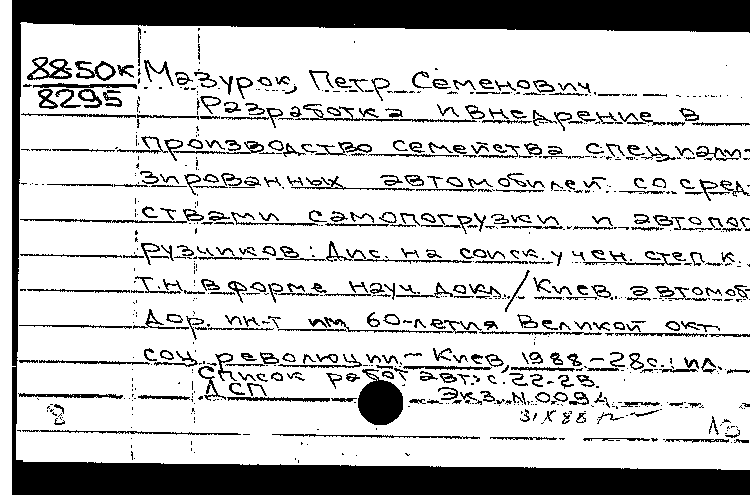 8850к Мазурок, Петр Семенович
8295 Разработка и внедрение в
производство семейства специали-
зированных автомобилей со сред
ствами самопогрузки и автопог
рузчиков: Дис. на соиск. учен. степ. к.
т.н. в форме науч. докл. / Киев. автомоб
дор. ин-т им. 60-летия Великой окт.
соц. революции - Киев, 1988 - 28с.: ил.
Список работ авт.: с. 22-28.
ДСП Экз. N 0094
8 31 X 88